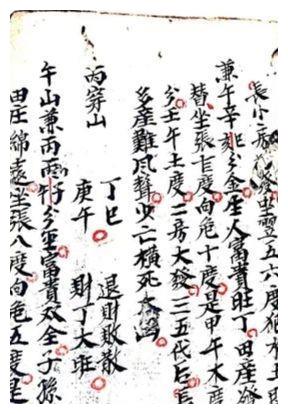 長小房坐翌五六度犯水土
兼午辛分金生人富貴旺丁田産發
替坐張七度向危十度是甲午木度
分壬午土度二房大發三五代后長
多産難風聲少亡横死大凶
丙穿山
丁巳 退財敗散
庚午 財丁大旺
午山兼丙分坐富貴双全子孫
田庄綿遠坐張八度向危五度是